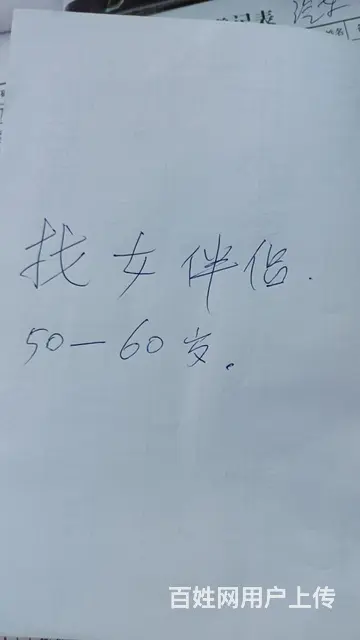 汽车
找女伴侣.
50—60岁.
百姓网用户上传